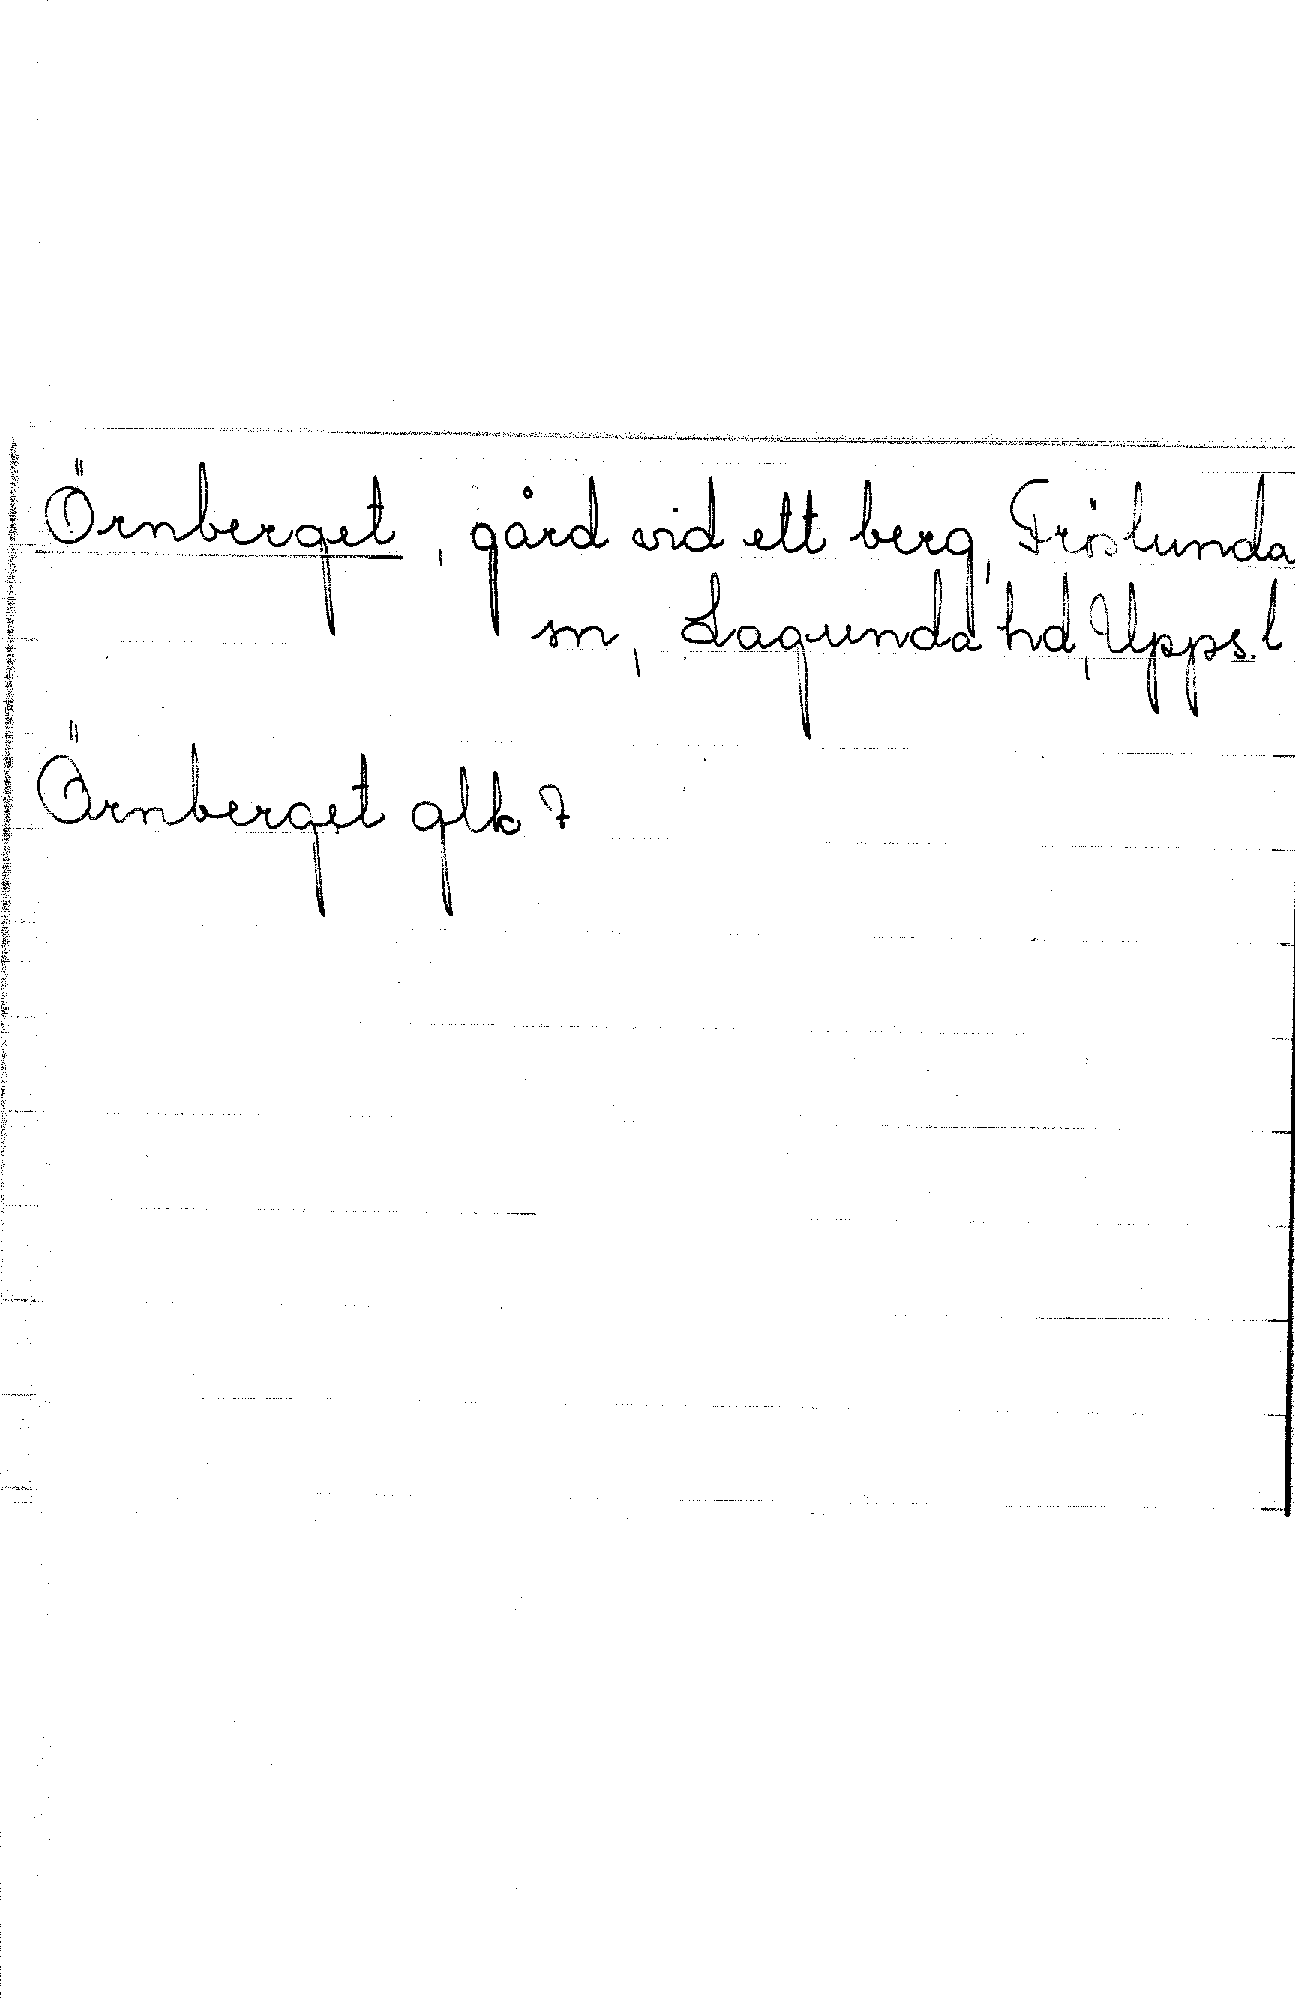 Örnberget, gård vid ett berg, Fröslunda
sn, Lagunda hd, Upps. l
Örnberget glk 7